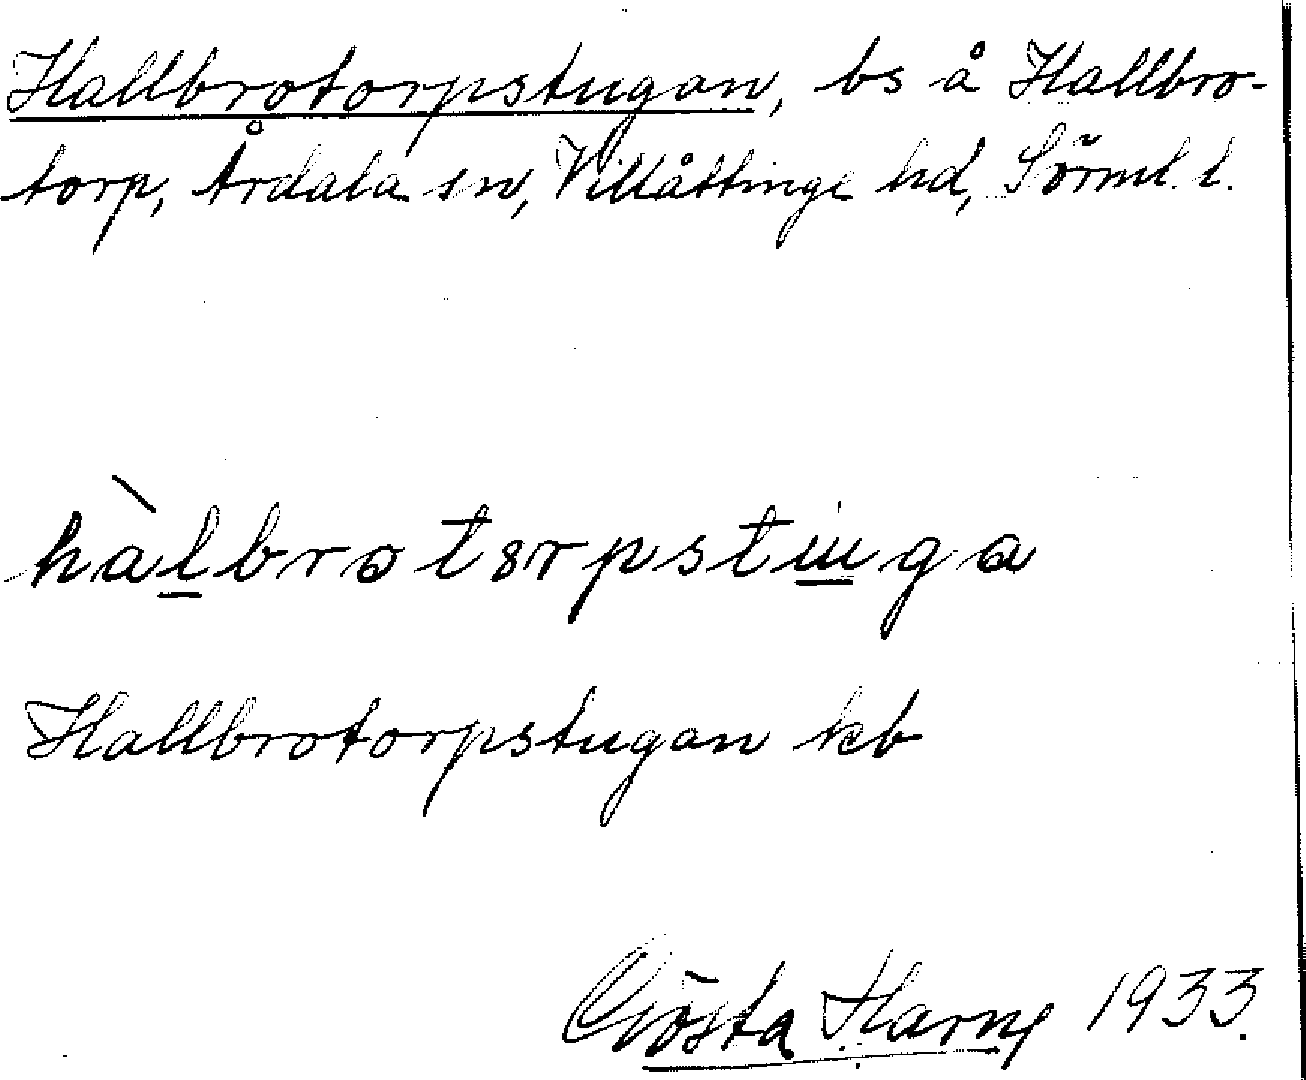 Hallbrotorpstugan, bs å Hallbro-
torp, Årdala sn, Villåttinge hd, Sörml. l.
Hallbrotorpstugan kb
Gösta Harne 1933.